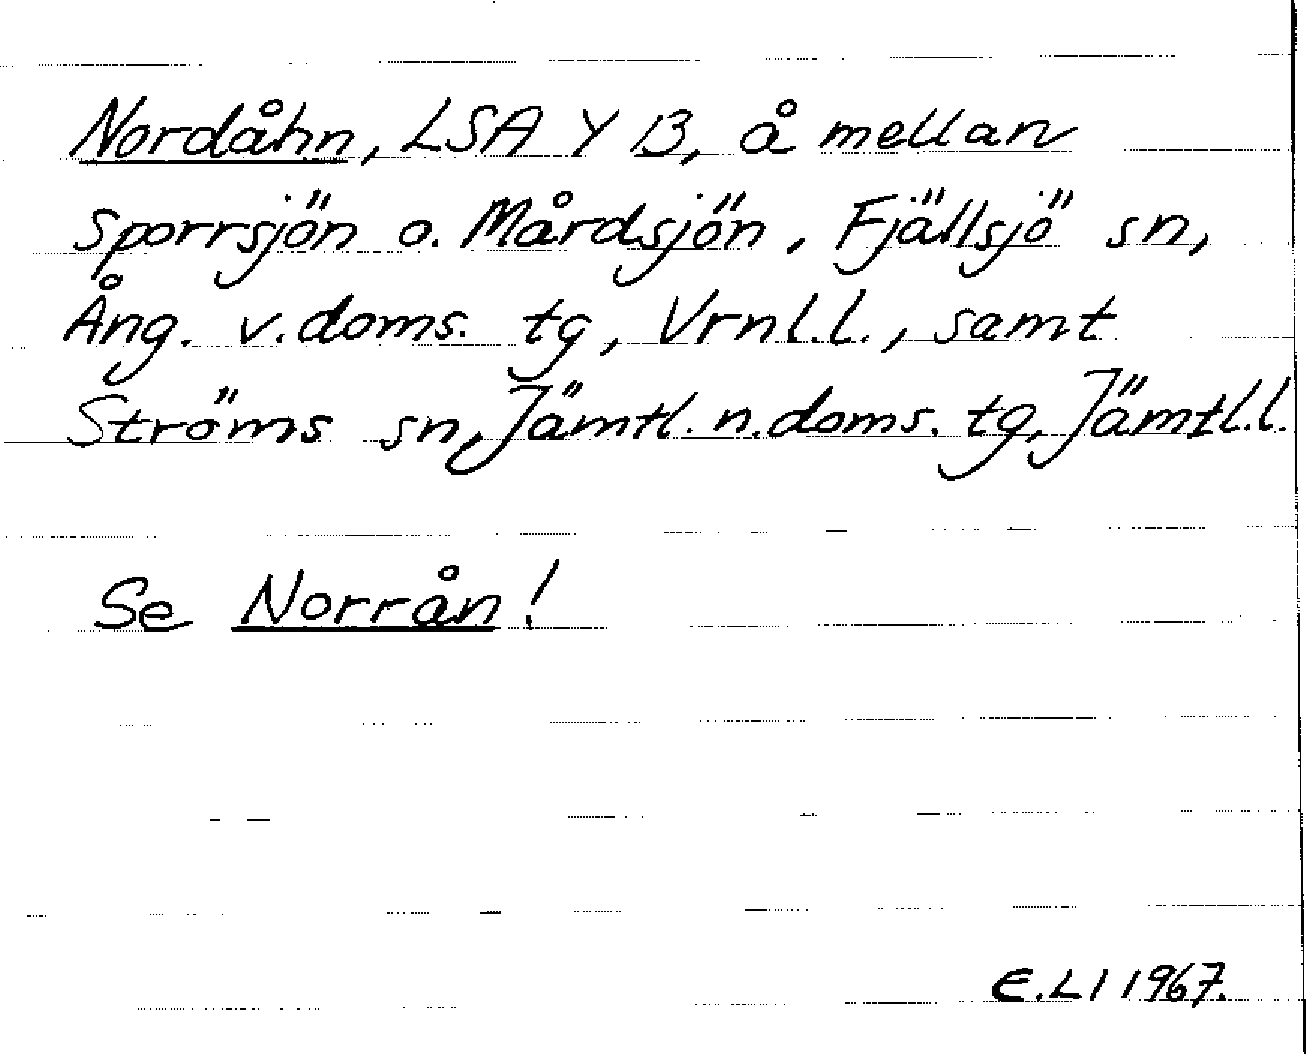 Nordåhn, LSA Y 13, å mellan
Sporrsjön o. Mårdsjön, Fjällsjö sn,
Ång. v. doms. tg, Vrnl.l., samt
Ströms sn, Jämtl. n. doms. tg, Jämtl.l.
Se Norrån!
E.LI 1967.